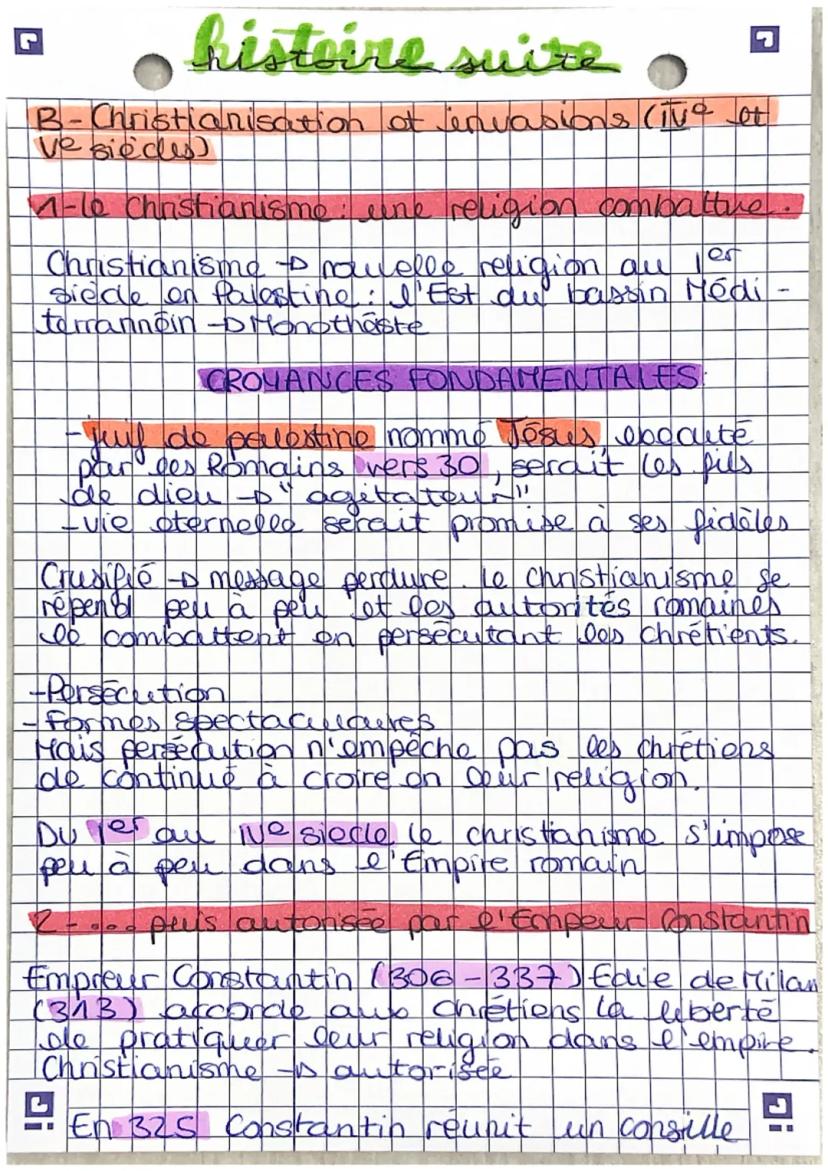 histoire suite
B-Christianisation et invasions (IVe et
Ve siècles)
1-le Christianisme : une religion combattue.
Christianisme → nouvelle religion au 1er
siècle en Palestine : l'Est du bassin Médi-
terrannéin → Monothéiste
CROYANCES FONDAMENTALES
-juif de palestine nommé Jésus, éxécuté
par les Romains vers 30, serait les fils
de dieu → "agitateur"
-vie éternelle serait promise à ses fidèles
Crusifié → message perdure. Le christianisme se
répend peu à peu et les autorités romaines
le combattent en persécutant les chrétients.
-Persécution
-formes spectaculaires
Mais persécution n'empêche pas les chrétiens
de continué à croire en leur religion.
Du 1er au IVe siecle le christianisme s'impose
peu à peu dans l'Empire romain
2-... puis autorisée par l'Empeur Constantin
Empreur Constantin (306-337) Edie de Milan
(313) accorde aux chrétiens la liberté
de pratiquer leur religion dans l'empire.
Christianisme → autorisée
En 325 Constantin réunit un consille